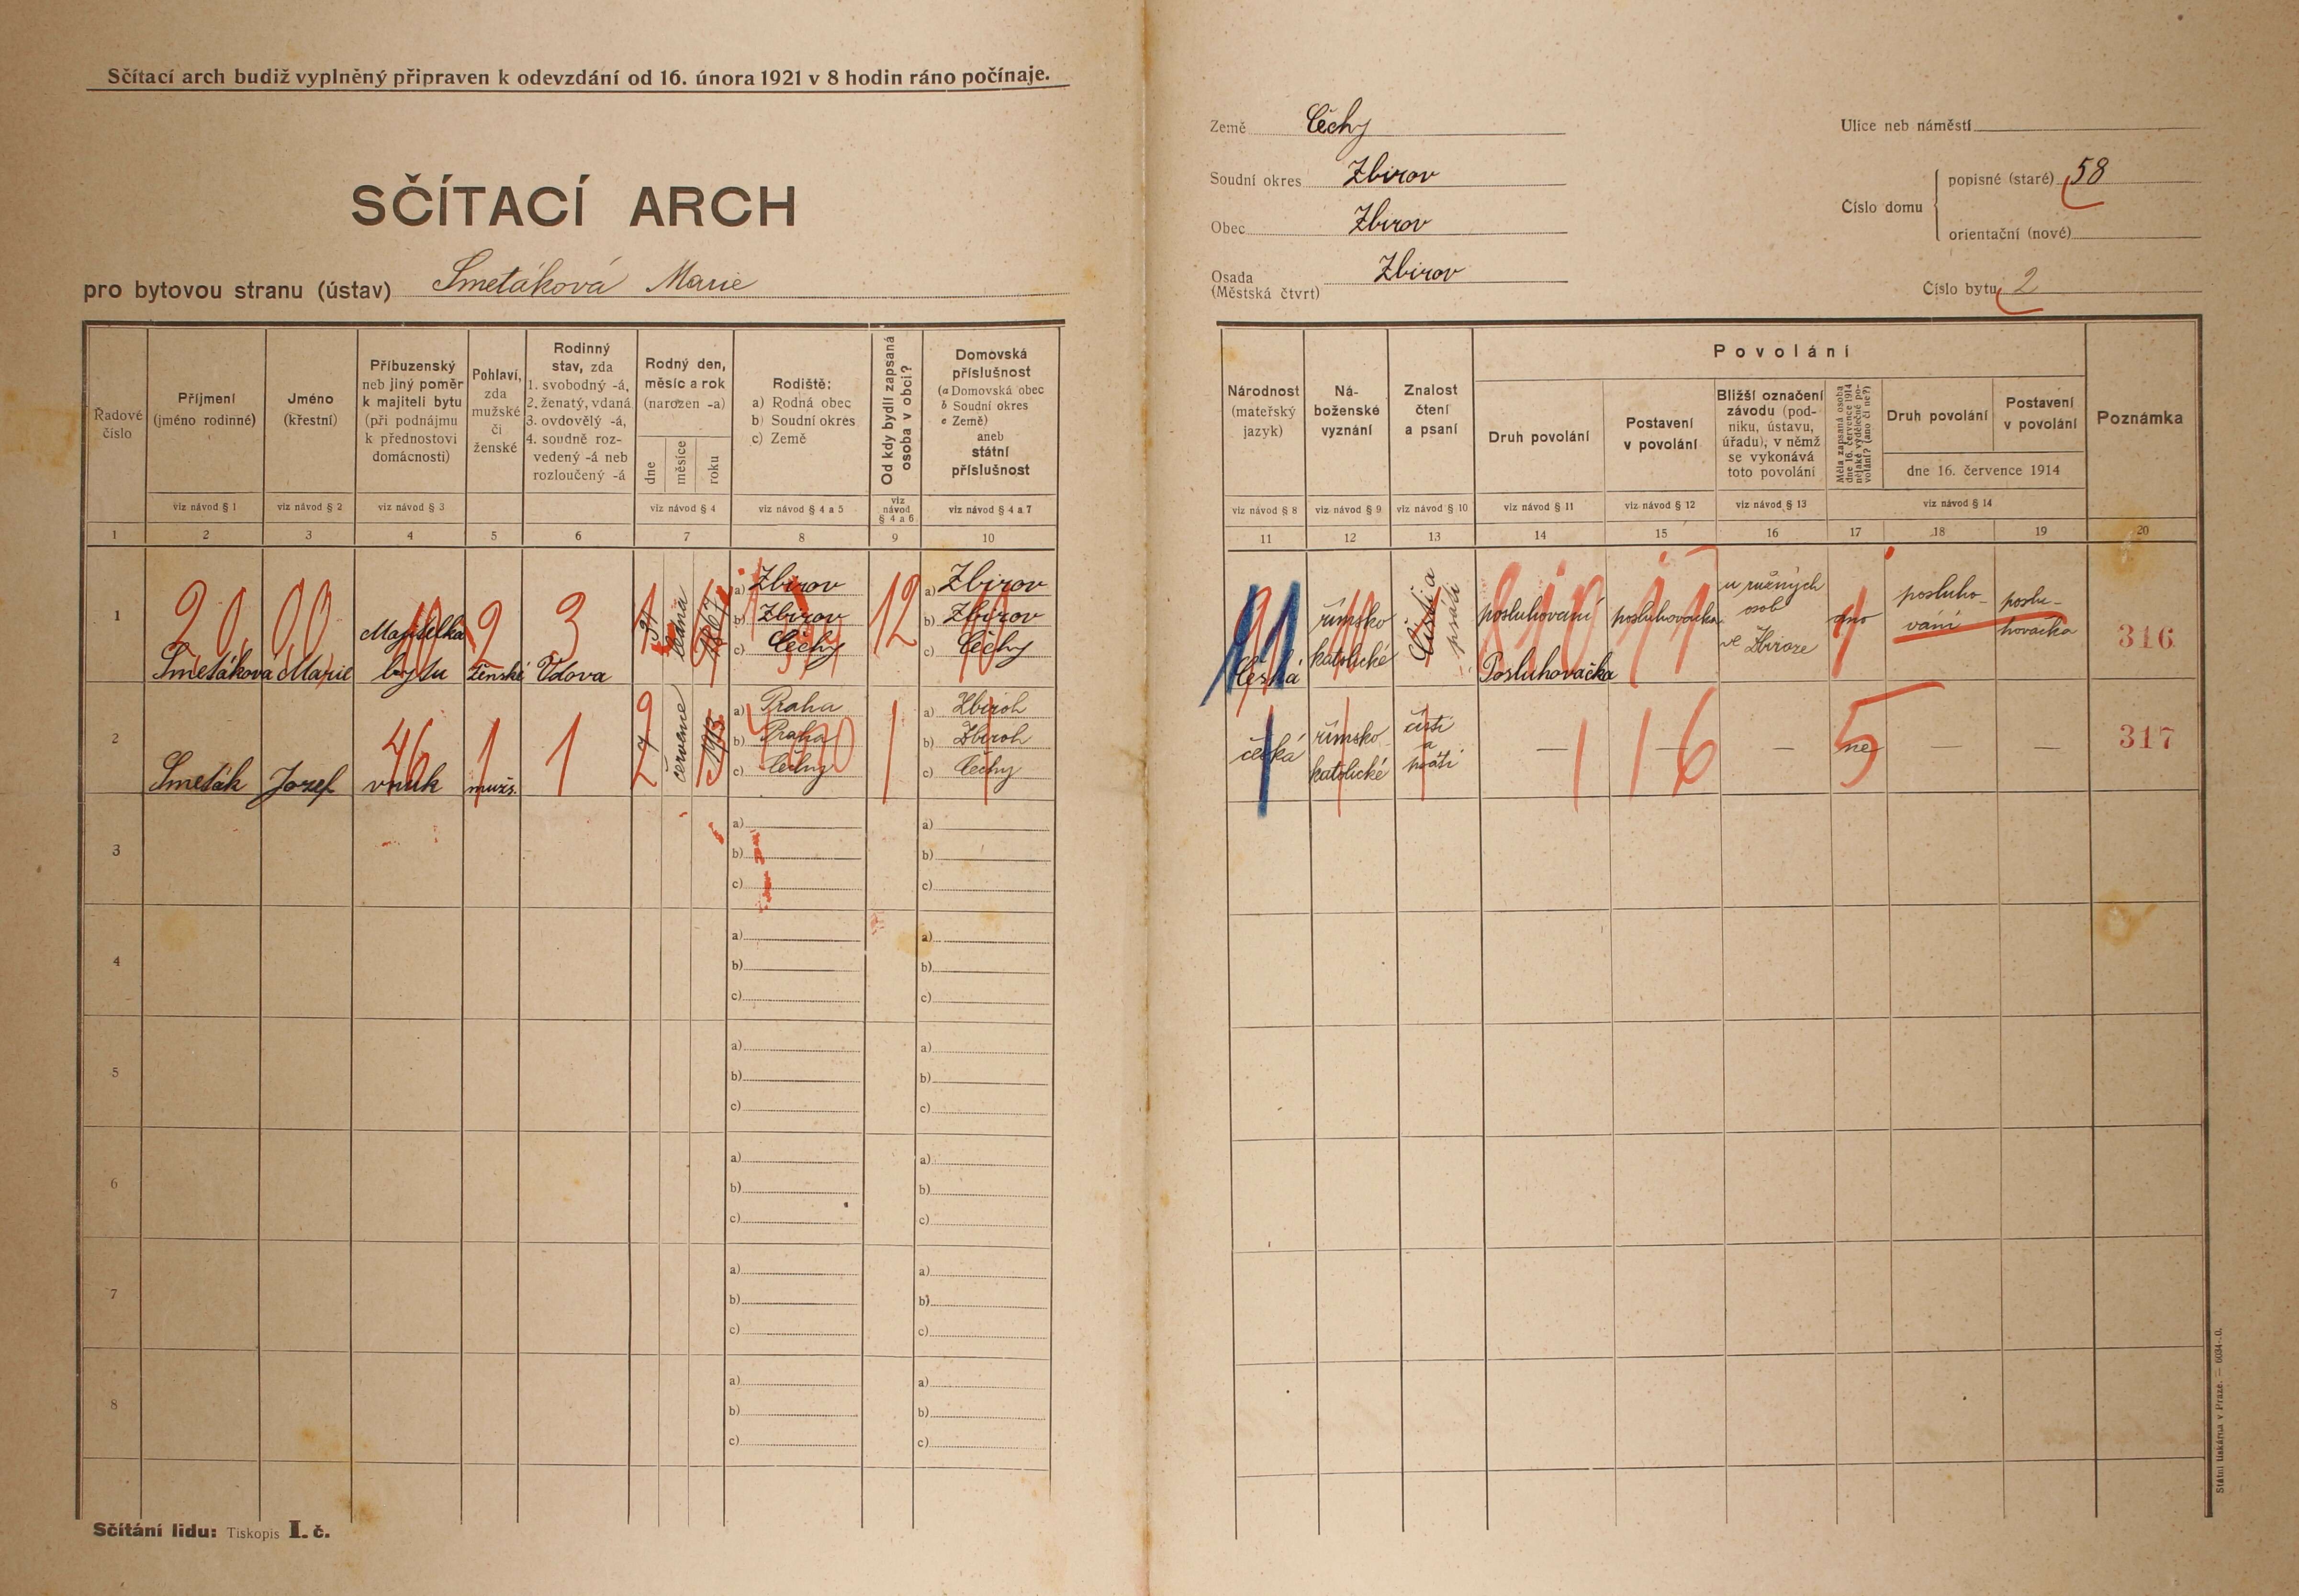 Sčítací arch budiž vyplněný připraven k odevzdání od 16. února 1921 v 8 hodin ráno počínaje.
SČÍTACÍ ARCH
pro bytovou stranu (ústav) Smetáková Marie
Země Čechy
Soudní okres Zbirov
Obec Zbirov
Osada (Městská čtvrt) Zbirov
Ulice neb náměstí
Číslo domu
popisné (staré) 58
orientační (nové)
Číslo bytu 2
Řadové číslo
Příjmení (jméno rodinné)
Jméno (křestní)
Příbuzenský neb jiný poměr k majiteli bytu (při podnájmu k přednostovi domácnosti)
Pohlaví, zda mužské či ženské
Rodinný stav, zda 1. svobodný -á, 2. ženatý, vdaná 3. ovdovělý -á, 4. soudně rozvedený -á neb rozloučený -á
Rodný den, měsíc a rok (narozen -a)
dne
měsíce
roku
Rodiště: a) Rodná obec b) Soudní okres c) Země
Od kdy bydlí zapsaná osoba v obci?
Domovská příslušnost (a Domovská obec b Soudní okres c Země) aneb státní příslušnost
viz návod § 1
viz návod § 2
viz návod § 3
viz návod § 4
viz návod § 4 a 5
viz návod § 4 a 6
viz návod § 4 a 7
1 2 3 4 5 6 7 8 9 10
Národnost (mateřský jazyk)
Náboženské vyznání
Znalost čtení a psaní
Povolání
Druh povolání
Postavení v povolání
Bližší označení závodu (podniku, ústavu, úřadu), v němž se vykonává toto povolání
Měla zapsaná osoba dne 16. července 1914 nějaké výdělečné povolání? (ano či ne?)
Druh povolání
Postavení v povolání
dne 16. července 1914
Poznámka
viz návod § 8
viz návod § 9
viz návod § 10
viz návod § 11
viz návod § 12
viz návod § 13
viz návod § 14
11 12 13 14 15 16 17 18 19 20
1
20 00
Smetáková Marie
Majitelka bytu
2
ženské
3
Vdova
31
ledna
1867
a) Zbirov
b) Zbirov
c) Čechy
12
a) Zbirov
b) Zbirov
c) Čechy
česká
římsko katolické
Čísti a psáti
posluhování
Posluhovačka
posluhovačka
u různých osob ve Zbiroze
ano
posluhování
posluhovačka
316
2
Smeták Jozef
vnuk
46
1
mužs.
1
27
červene
1913
a) Praha
b) Praha
c) Čechy
1
a) Zbiroh
b) Zbiroh
c) Čechy
česká
římsko katolické
čísti a psáti
— 1
16
—
ne
5
—
—
317
3
a)
b)
c)
a)
b)
c)
4
a)
b)
c)
a)
b)
c)
5
a)
b)
c)
a)
b)
c)
6
a)
b)
c)
a)
b)
c)
7
a)
b)
c)
a)
b)
c)
8
a)
b)
c)
a)
b)
c)
Sčítání lidu: Tiskopis I. č.
Státní tiskárna v Praze. — 6034-.0.